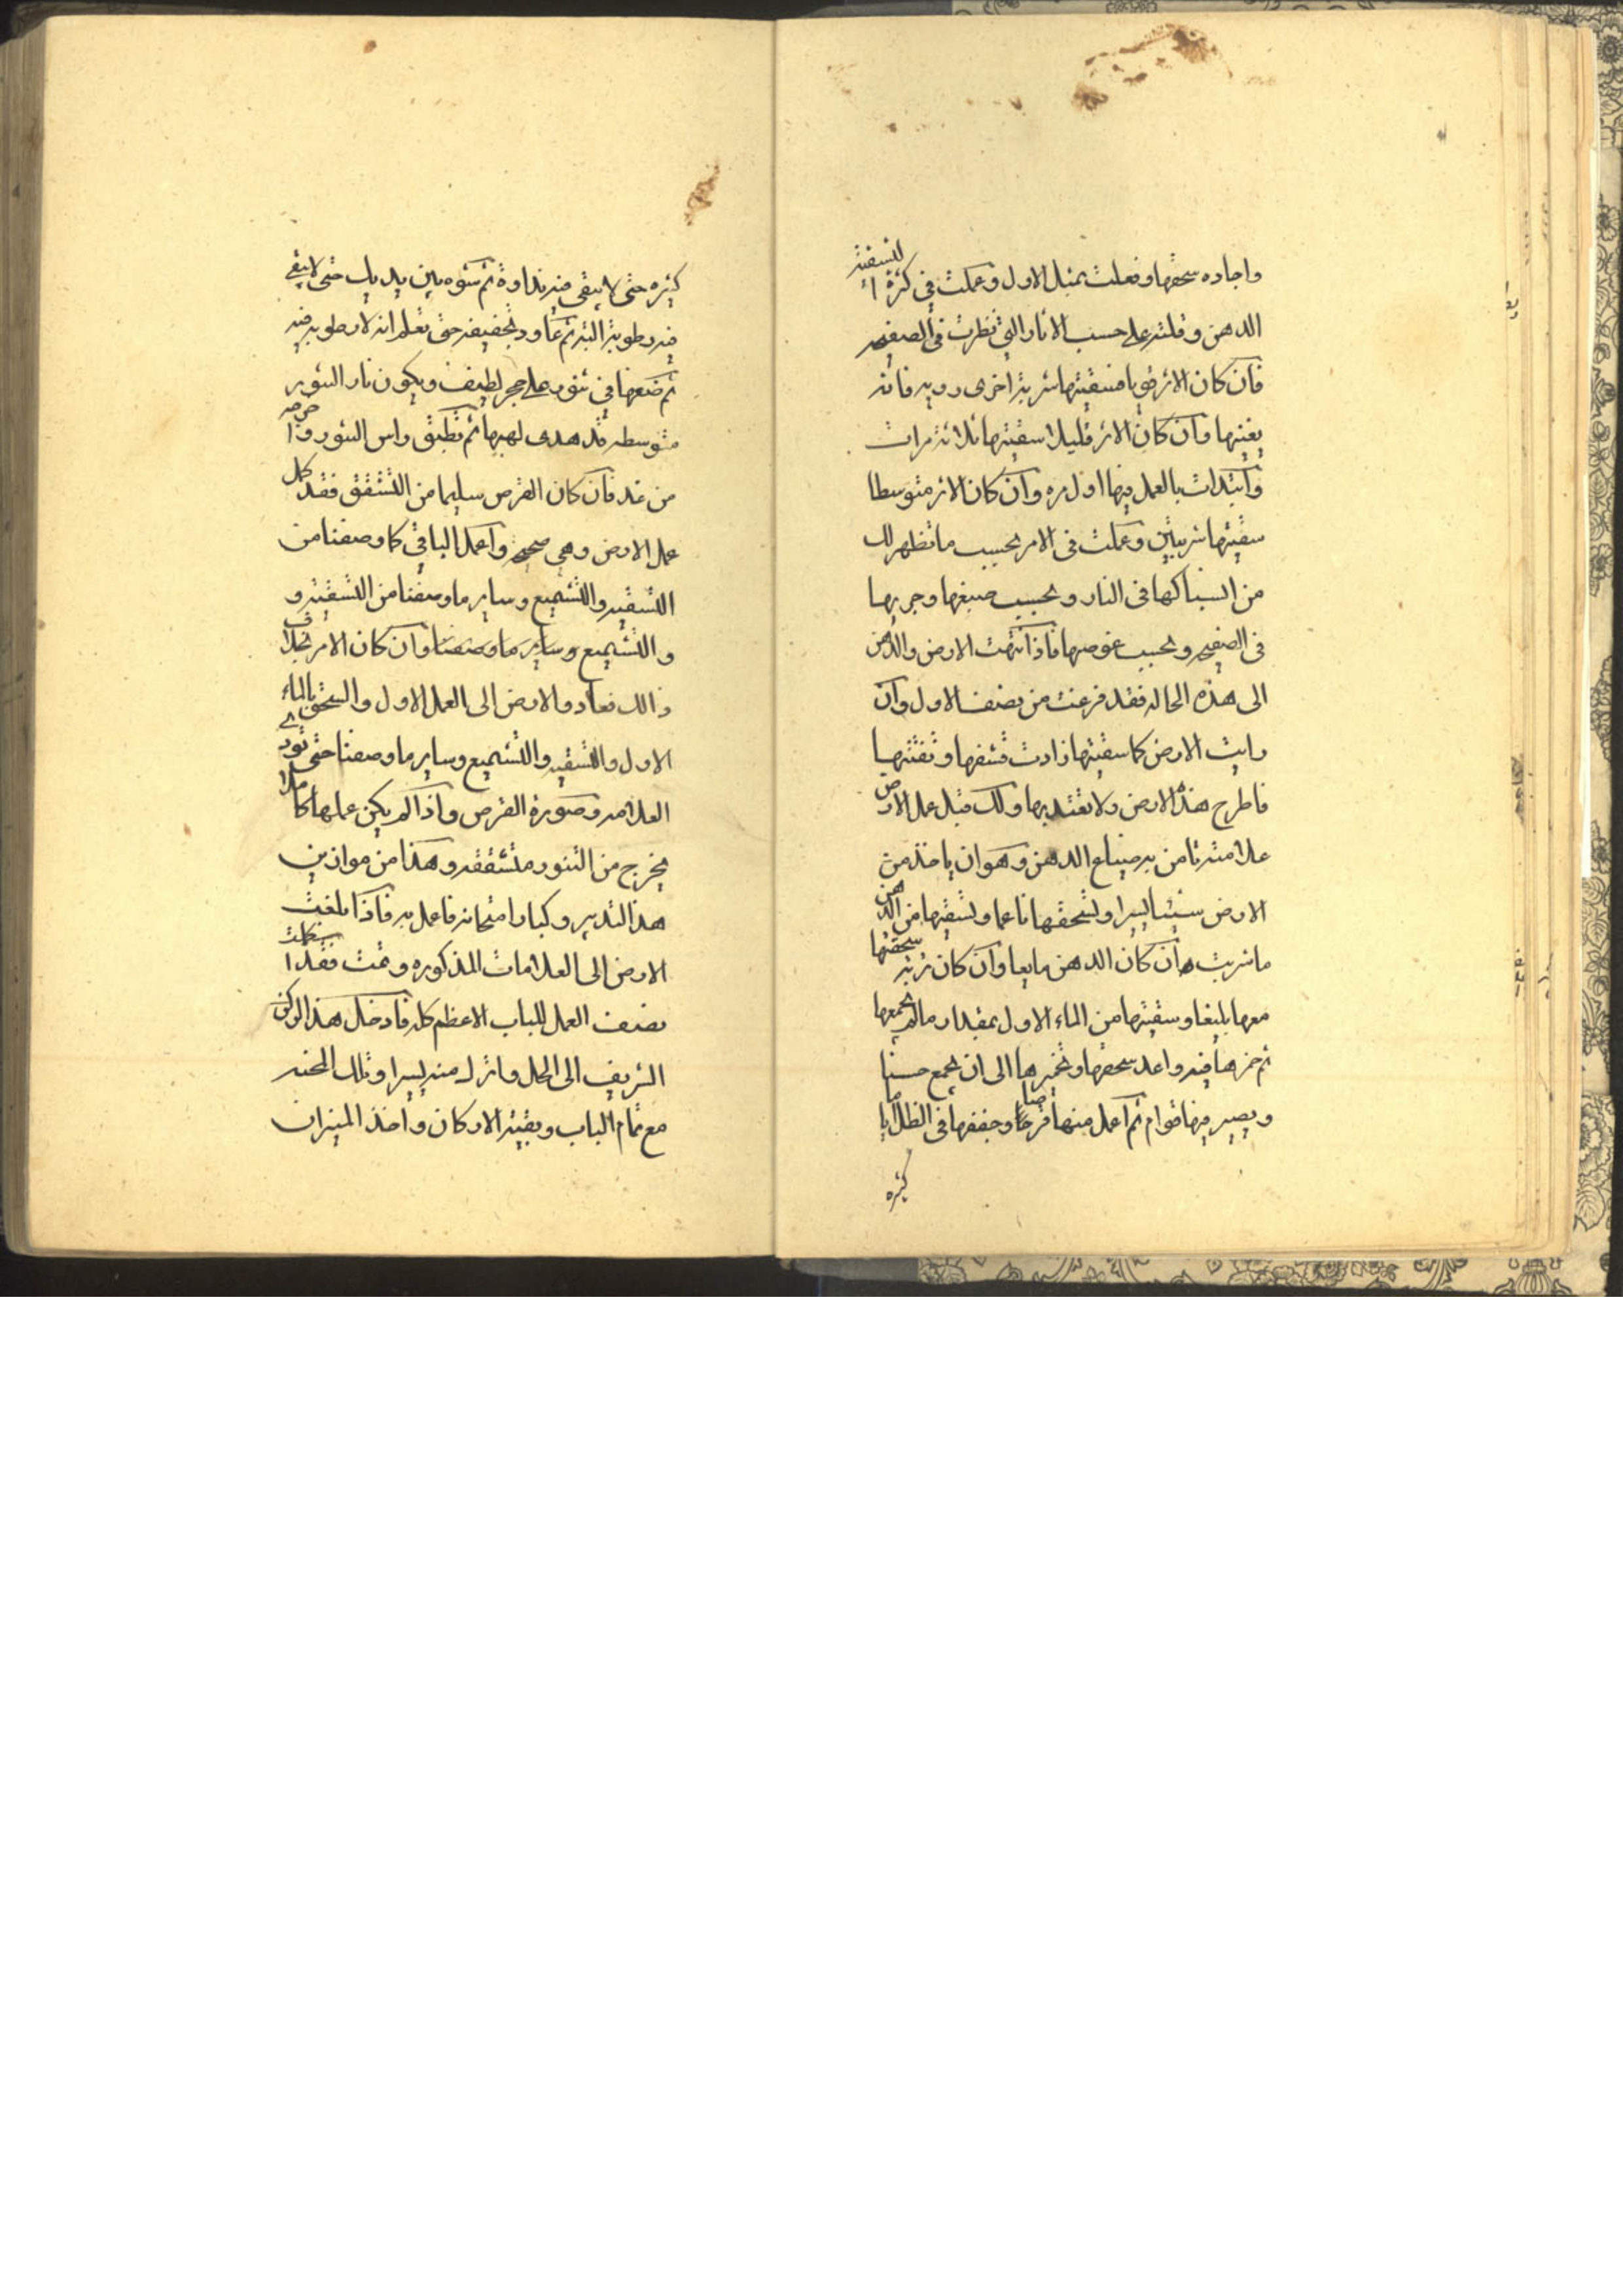 واجاده سحقها وفعلت بمثل الاول وعملت في كثرة التسقية
الدهن وقلته على حسب الاثار التي نظرت في الصفيحه
فان كان الاثر قويا فسقيتها شربة اخرى رويه فانه
يغنيها وان كان الاثر قليلا سقيتها ثلاثة مرات
وابتدات بالعمل فيها اول مره وان كان الاثر متوسطا
سقيتها شربتين وعملت في الامر بحسب ما تظهر لك
من انسباكها في النار وبحسب صبغها وجريها
في الصفيحه وبحسب غوصها فاذا انتهت الارض والدهن
الى هذه الحاله فقد فرغت من نصف الاول وان
رايت الارض كلما سقيتها زادت قشفها وتفتتها
فاطرح هذه الارض ولا تعتد بها ولك قبل عمل الارض
علامة تامن به ضياع الدهن وهو ان ياخذ من
الارض شيئا يسيرا وتسحقها ناعما وتسقيها من الدهن
ما شربت ان كان الدهن مايعا وان كان سحقتها
معها بليغا وسقيتها من الماء الاول بمقدار ما يجمعها
ثم خمرها فيه واعد سحقها وتخميرها الى ان يجمع حسنا
ويصير فيها قوام ثم اعمل منها قرصا وجففها في الظل اياما
كثيره
كثيره حتى لا يبقى فيه نداوة ثم شوه بين يديك حتى لا يبقى
فيه رطوبة البته ثم عاود تجفيفه حتى تعلم انه لا رطوبه فيه
ثم ضعها في تنور على حجر لطيف ويكون نار التنور
متوسطه قد هدى لهبها ثم تطبق راس التنور واخرجه
من غد فان كان القرص سليما من التشقق فقد كمل
عمل الارض وهي صحيحه واعمل الباقي كما وصفنا من
التسقيه والتشميع وساير ما وصفنا من التسقيه و
والتشميع وساير ما وصفنا وان كان الامر بخلاف
ذالك فعاود الارض الى العمل الاول والسحق بالماء
الاول والتسقيه والتشميع وساير ما وصفنا حتى تود لى
العلامه وصورة القرص واذا لم يكن عملها كاملا
يخرج من التنور متشققه وهذا من موازين
هذا التدبير وكبار امتحانه فاعمل به فاذا بلغت
الارض الى العلامات المذكوره وتمت فقد استكملت
نصف العمل للباب الاعظم كله فادخل هذا الركن
الشريف الى الحل وانزل منه يسيرا وتلك المحنه
مع تمام الباب وبقية الاركان واخذ الميزان